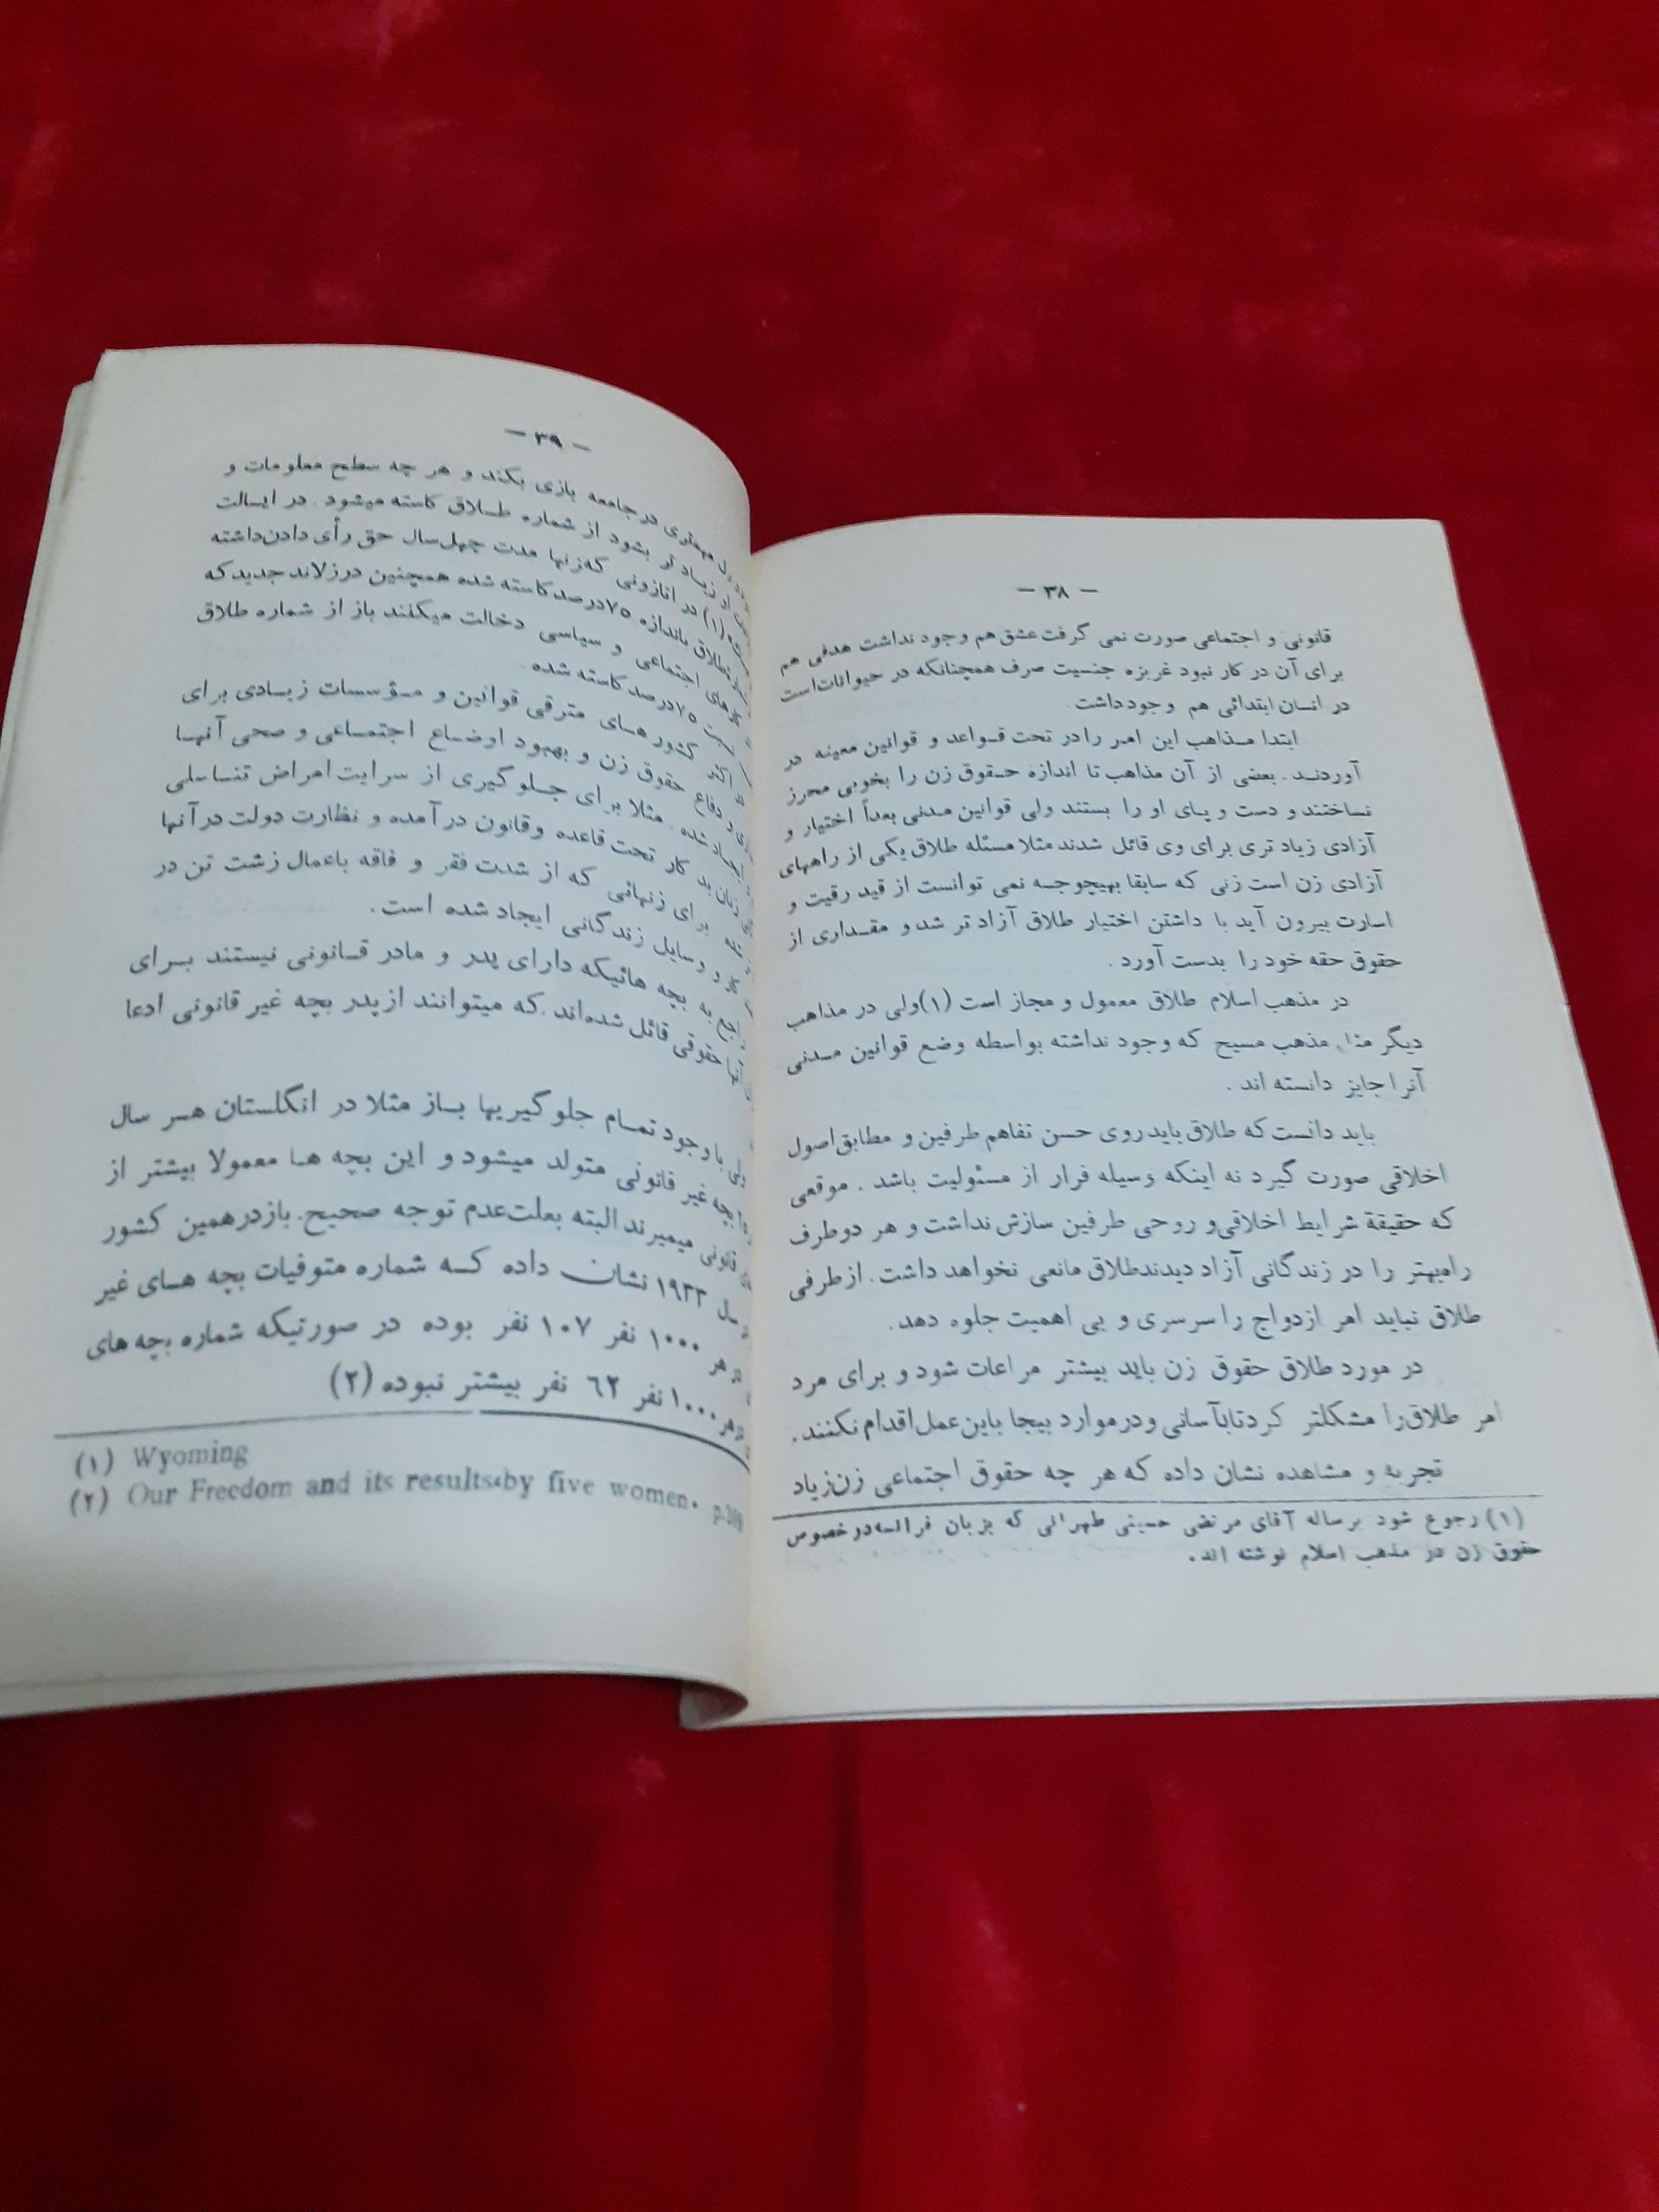 — ٣٨ —
قانونی و اجتماعی صورت نمی گرفت عشق هم وجود نداشت هدفی هم
برای آن در کار نبود غریزه جنسیت صرف همچنانکه در حیوانات است
در انسان ابتدائی هم وجود داشت.
ابتدا مذاهب این امر را در تحت قواعد و قوانین معینه در
آوردند. بعضی از آن مذاهب تا اندازه حقوق زن را بخوبی محرز
نساختند و دست و پای او را بستند ولی قوانین مدنی بعداً اختیار و
آزادی زیاد تری برای وی قائل شدند مثلا مسئله طلاق یکی از راههای
آزادی زن است زنی که سابقا بهیچوجه نمی توانست از قید رقیت و
اسارت بیرون آید با داشتن اختیار طلاق آزاد تر شد و مقداری از
حقوق حقه خود را بدست آورد.
در مذهب اسلام طلاق معمول و مجاز است (۱) ولی در مذاهب
دیگر مثل مذهب مسیح که وجود نداشته بواسطه وضع قوانین مدنی
آنرا جایز دانسته اند.
باید دانست که طلاق باید روی حسن تفاهم طرفین و مطابق اصول
اخلاقی صورت گیرد نه اینکه وسیله فرار از مسئولیت باشد. موقعی
که حقیقة شرایط اخلاقی و روحی طرفین سازش نداشت و هر دو طرف
راه بهتر را در زندگانی آزاد دیدند طلاق مانعی نخواهد داشت. از طرفی
طلاق نباید امر ازدواج را سرسری و بی اهمیت جلوه دهد.
در مورد طلاق حقوق زن باید بیشتر مراعات شود و برای مرد
امر طلاق را مشکلتر کرد تا بآسانی و در موارد بیجا باین عمل اقدام نکنند.
تجربه و مشاهده نشان داده که هر چه حقوق اجتماعی زن زیاد
(۱) رجوع شود برساله آقای مرتضی حسینی طهرانی که بزبان فرانسه در خصوص
حقوق زن در مذهب اسلام نوشته اند.
— ٣٩ —
مهمتری در جامعه بازی بکند و هر چه سطح معلومات و
زیاد تر بشود از شماره طلاق کاسته میشود. در ایالت
(۱) در اتازونی که زنها مدت چهل سال حق رأی دادن داشته
طلاق باندازه ۷۵ درصد کاسته شده همچنین در زلاند جدید که
کارهای اجتماعی و سیاسی دخالت میکنند باز از شماره طلاق
۷۵ درصد کاسته شده.
در اکثر کشور های مترقی قوانین و مؤسسات زیادی برای
و دفاع حقوق زن و بهبود اوضاع اجتماعی و صحی آنها
ایجاد شده. مثلا برای جلوگیری از سرایت امراض تناسلی
زنان بد کار تحت قاعده و قانون در آمده و نظارت دولت در آنها
شده برای زنهائی که از شدت فقر و فاقه باعمال زشت تن در
کار و وسایل زندگانی ایجاد شده است.
راجع به بچه هائیکه دارای پدر و مادر قانونی نیستند برای
آنها حقوقی قائل شده اند که میتوانند از پدر بچه غیر قانونی ادعا
ولی با وجود تمام جلوگیریها باز مثلا در انگلستان هر سال
بچه غیر قانونی متولد میشود و این بچه ها معمولا بیشتر از
قانونی میمیرند البته بعلت عدم توجه صحیح. باز در همین کشور
سال ۱۹۳۳ نشان داده که شماره متوفیات بچه های غیر
هر ۱۰۰۰ نفر ۱۰۷ نفر بوده در صورتیکه شماره بچه های
هر ۱۰۰۰ نفر ٦٢ نفر بیشتر نبوده (۲)
(۱) Wyoming
(۲) Our Freedom and its results،by five women.